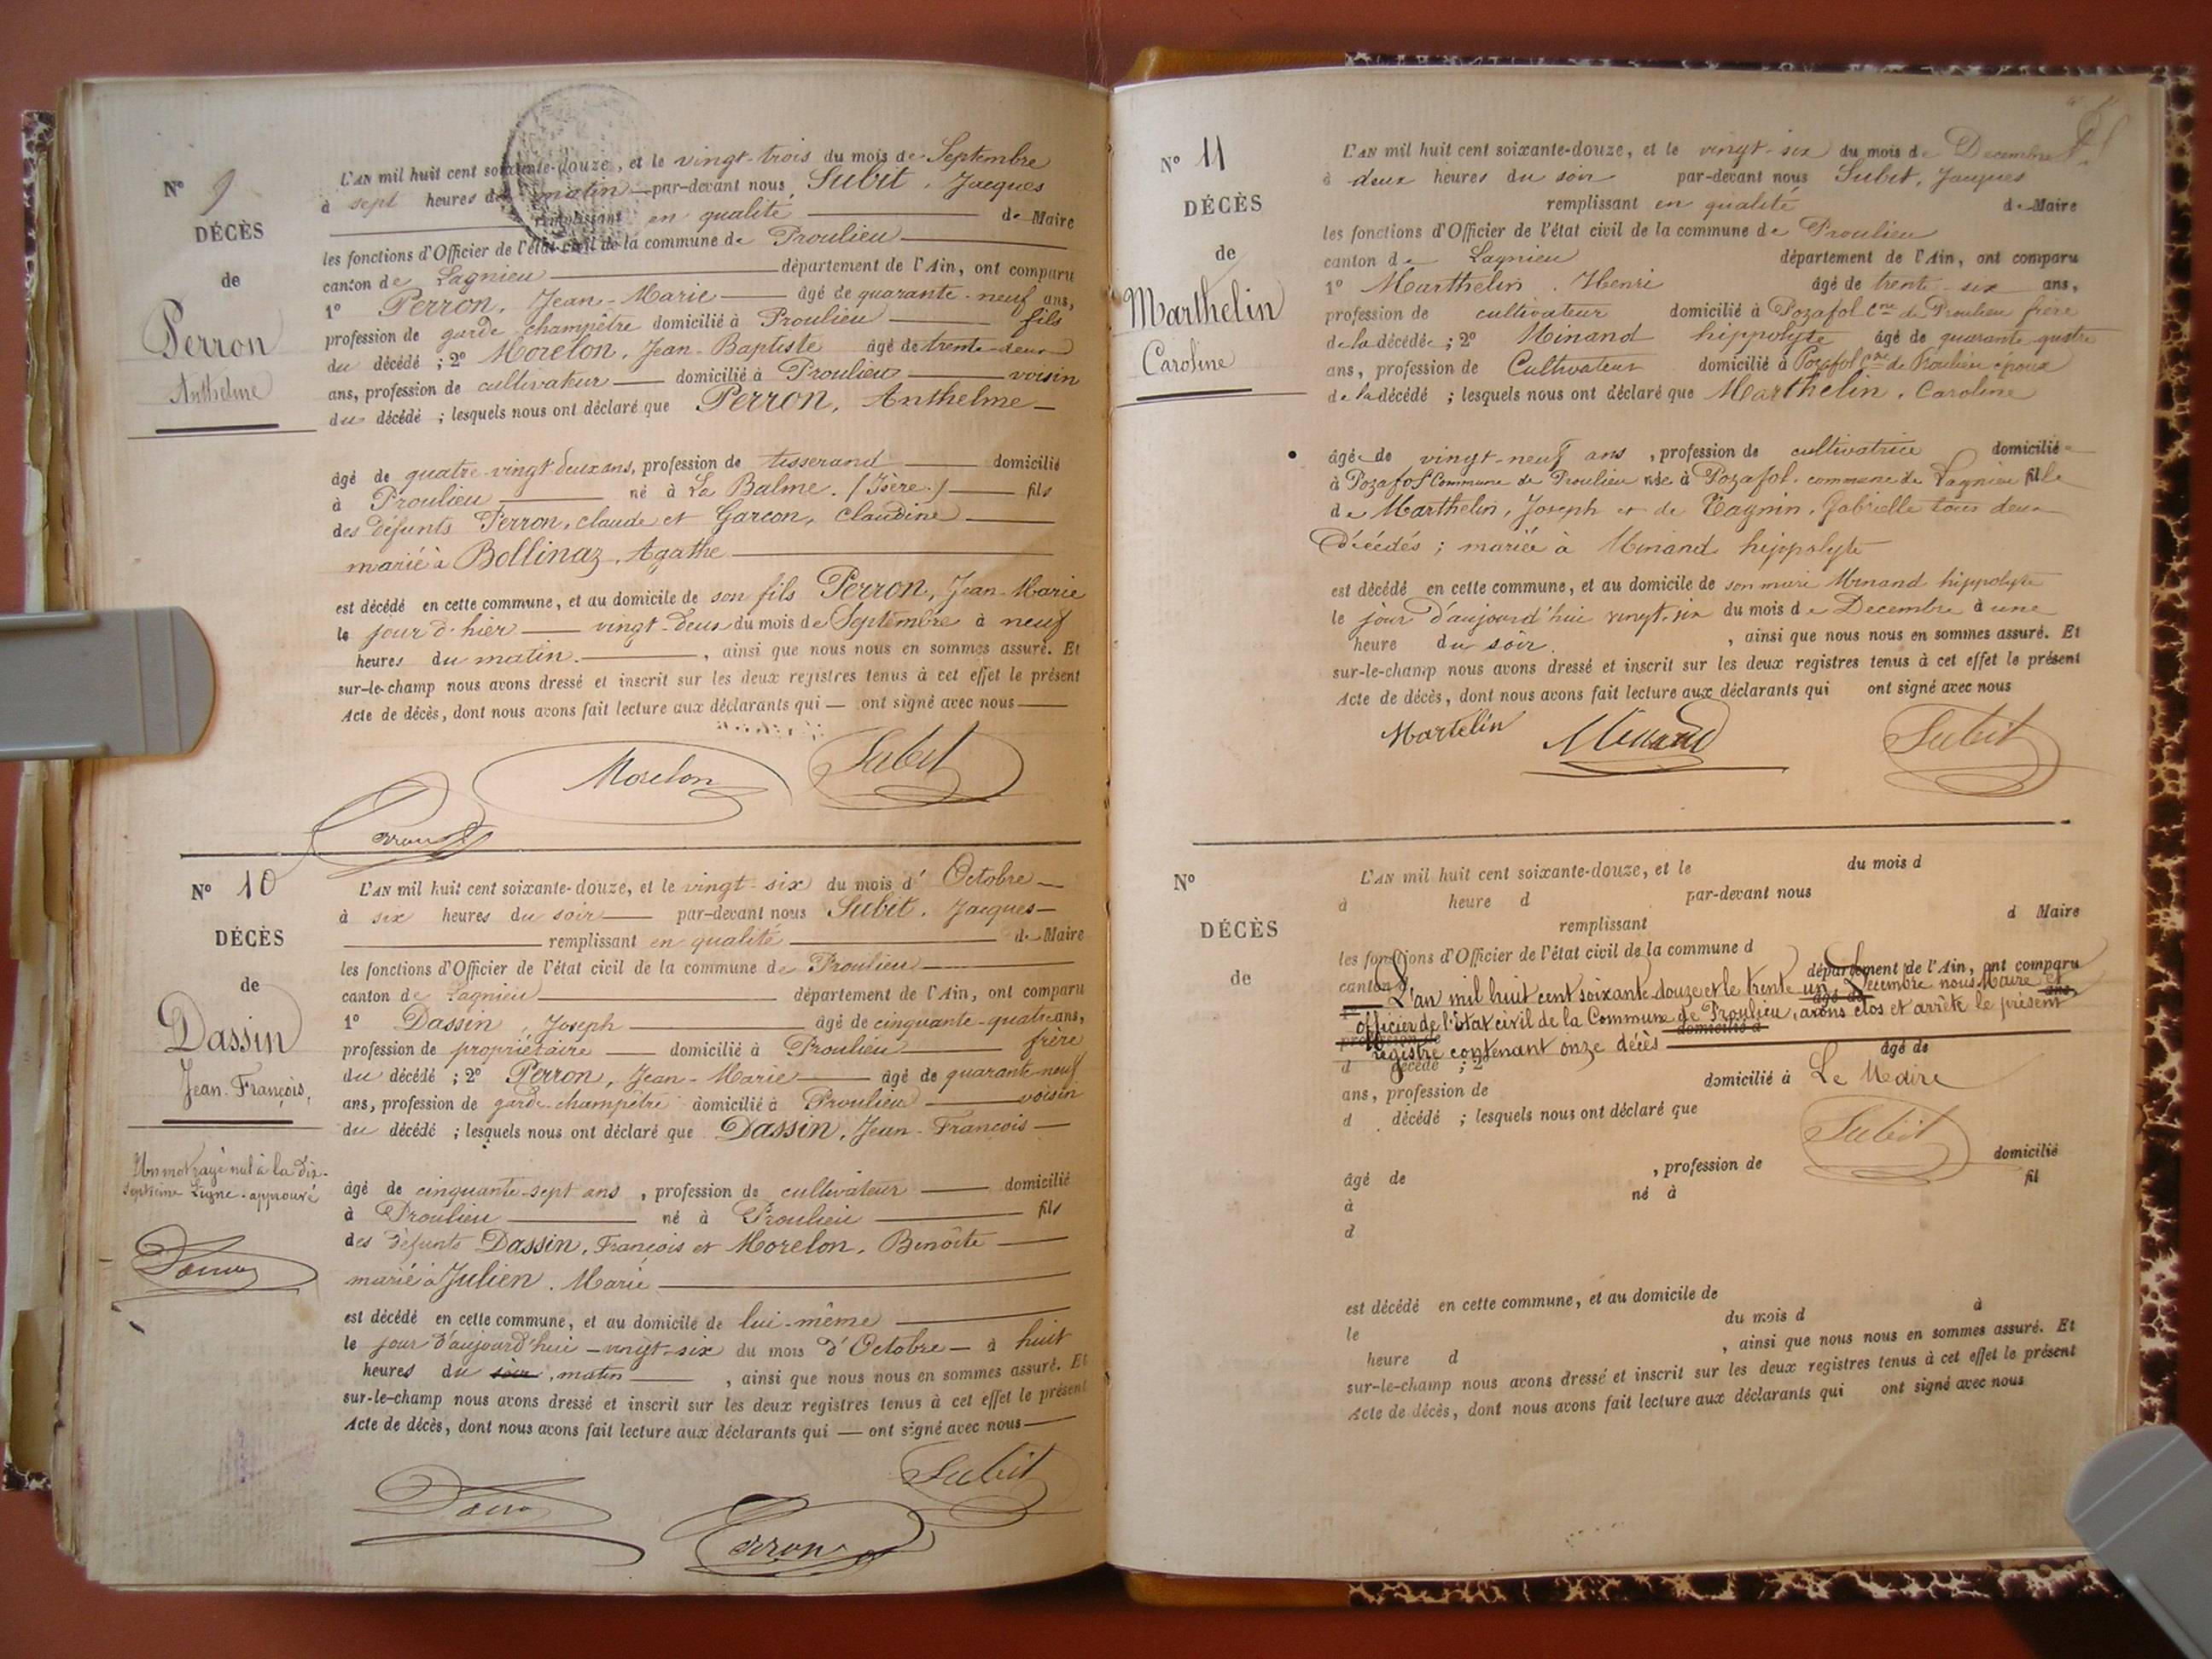 N° 9
DÉCÈS
de
Perron
Anthelme
L'AN mil huit cent soixante-douze, et le vingt-trois du mois de Septembre
à sept heures du matin par-devant nous Subit, Jacques
remplissant en qualité de Maire
les fonctions d'Officier de l'état civil de la commune de Proulieu
canton de Lagnieu département de l'Ain, ont comparu
1° Perron, Jean-Marie âgé de quarante-neuf ans,
profession de garde champêtre domicilié à Proulieu fils
du décédé ; 2° Morelon, Jean-Baptiste âgé de trente-deux
ans, profession de cultivateur domicilié à Proulieu voisin
du décédé ; lesquels nous ont déclaré que Perron, Anthelme
âgé de quatre-vingt deux ans, profession de tisserand domicilié
à Proulieu né à La Balme. (Isère) fils
des défunts Perron, claude et Garcon, Claudine
marié à Bollinaz, Agathe
est décédé en cette commune, et au domicile de son fils Perron, Jean-Marie
le jour d'hier vingt-deux du mois de Septembre à neuf
heures du matin. , ainsi que nous nous en sommes assuré. Et
sur-le-champ nous avons dressé et inscrit sur les deux registres tenus à cet effet le présent
Acte de décès, dont nous avons fait lecture aux déclarants qui ont signé avec nous
Morelon Subit
Perron
N° 10
DÉCÈS
de
Dassin
Jean-François,
Un mot rayé nul à la dix-
septième Ligne. approuvé
L'AN mil huit cent soixante-douze, et le vingt-six du mois d'Octobre
à six heures du soir par-devant nous Subit, Jacques
remplissant en qualité de Maire
les fonctions d'Officier de l'état civil de la commune de Proulieu
canton de Lagnieu département de l'Ain, ont comparu
1° Dassin, Joseph âgé de cinquante-quatre ans,
profession de propriétaire domicilié à Proulieu frère
du décédé ; 2° Perron, Jean-Marie âgé de quarante neuf
ans, profession de garde-champêtre domicilié à Proulieu voisin
du décédé ; lesquels nous ont déclaré que Dassin, Jean-François
âgé de cinquante-sept ans , profession de cultivateur domicilié
à Proulieu né à Proulieu fils
des défunts Dassin, François et Morelon, Benoîte
marié à Julien, Marie
est décédé en cette commune, et au domicile de lui-même
le jour d'aujourd'hui vingt-six du mois d'Octobre à huit
heures du soir, matin , ainsi que nous nous en sommes assuré. Et
sur-le-champ nous avons dressé et inscrit sur les deux registres tenus à cet effet le présent
Acte de décès, dont nous avons fait lecture aux déclarants qui ont signé avec nous
Subit
Perron
N° 11
DÉCÈS
de
Marthelin
Caroline
L'AN mil huit cent soixante-douze, et le vingt-six du mois de Decembre
à deux heures du soir par-devant nous Subit, Jacques
remplissant en qualité de Maire
les fonctions d'Officier de l'état civil de la commune de Proulieu
canton de Lagnieu département de l'Ain, ont comparu
1° Marthelin, Henri âgé de trente-six ans,
profession de cultivateur domicilié à Pozafol Cne de Proulieu frère
de la décédée ; 2° Minand hippolyte âgé de quarante-quatre
ans, profession de Cultivateur domicilié à Pozafol Cne de Proulieu époux
de la décédé ; lesquels nous ont déclaré que Marthelin, Caroline
âgée de vingt-neuf ans , profession de cultivatrice domiciliée
à Pozafol Commune de Proulieu née à Pozafol, commune de Lagnieu fille
de Marthelin, Joseph et de Gabrielle tous deux
Décédés ; mariée à Minand hippolyte
est décédé en cette commune, et au domicile de son mari Minand hippolyte
le jour d'aujourd'hui vingt-six du mois de Decembre à une
heure du soir. , ainsi que nous nous en sommes assuré. Et
sur-le-champ nous avons dressé et inscrit sur les deux registres tenus à cet effet le présent
Acte de décès, dont nous avons fait lecture aux déclarants qui ont signé avec nous
Martelin Minand Subit
N°
DÉCÈS
de
L'AN mil huit cent soixante-douze, et le du mois d
à heure d par-devant nous
remplissant d Maire
les fonctions d'Officier de l'état civil de la commune d
canton département de l'Ain, ont comparu
L'an mil huit cent soixante-douze et le trente un Décembre nous Maire et
âgé de ans
officier de l'état civil de la Commune de Proulieu, avons clos et arrêté le présent
profession de domicilié à
registre contenant onze décès
d décédé ; 2° âgé de
ans, profession de domicilié à
Le Maire
d décédé ; lesquels nous ont déclaré que
Subit
âgé de , profession de domicilié
à né à fil
d
est décédé en cette commune, et au domicile de
le du mois d à
heure d , ainsi que nous nous en sommes assuré. Et
sur-le-champ nous avons dressé et inscrit sur les deux registres tenus à cet effet le présent
Acte de décès, dont nous avons fait lecture aux déclarants qui ont signé avec nous